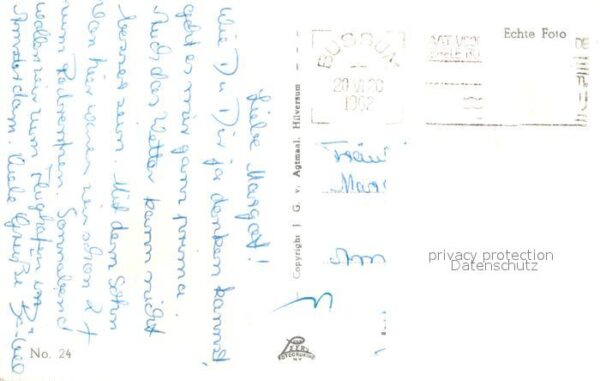 Liebe Margot!
Wie Du Dir ja denken kannst,
geht es mir ganz prima.
Auch das Wetter kann nicht
besser sein. Mit dem Sohn
von hier waren wir schon 2 x
zum Sonnabend
wollen wir zum Flughafen in
Amsterdam. Viele Grüße
No. 24
Copyright J. G. v. Agtmaal, Hilversum
BUSSUM
20 VI 20
1962
Echte Foto
Fräul
Marg
Am
privacy protection
Datenschutz